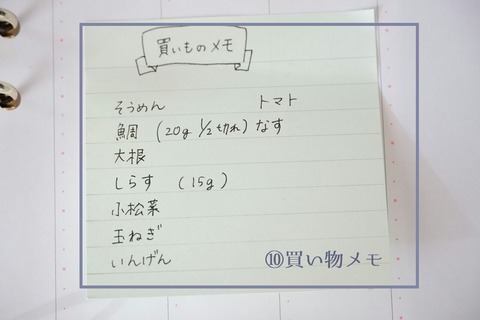 買いものメモ
そうめん トマト
鯛 (20g 1/2切れ) なす
大根
しらす (15g)
小松菜
玉ねぎ
いんげん
⑩買い物メモ